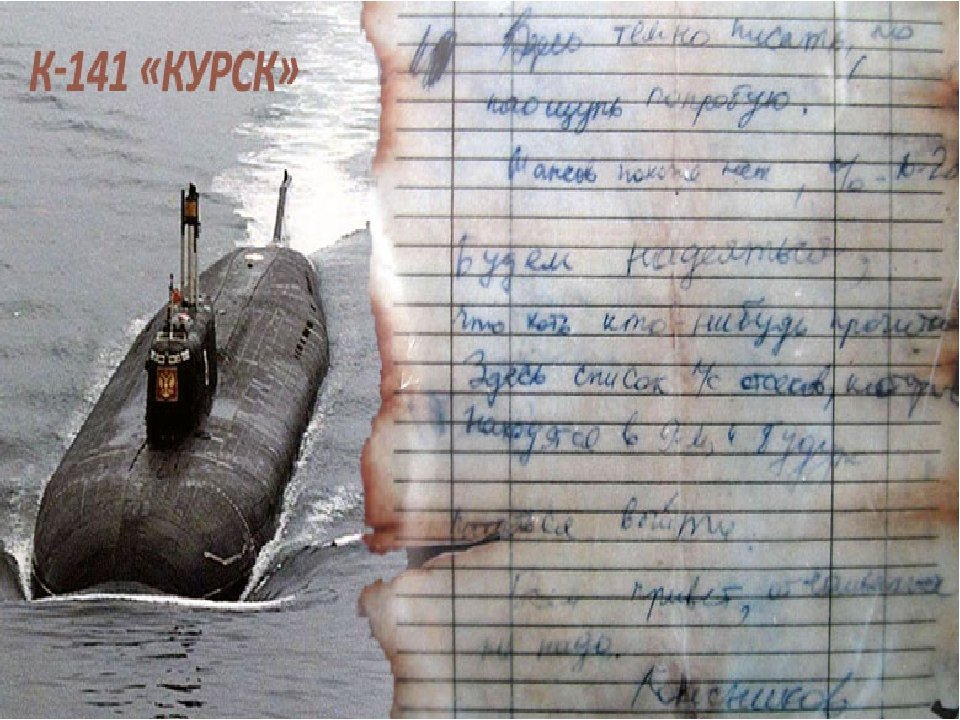 К-141 «КУРСК»
Здесь темно писать, но
наощупь попробую.
Шансов похоже нет, % - 10-20
Будем надеяться,
что хоть кто-нибудь прочитает
Здесь список л/с отсеков, которые
находятся в 9-м, и будут
пытаться выйти.
Всем привет, отчаиваться
не надо.
Колесников